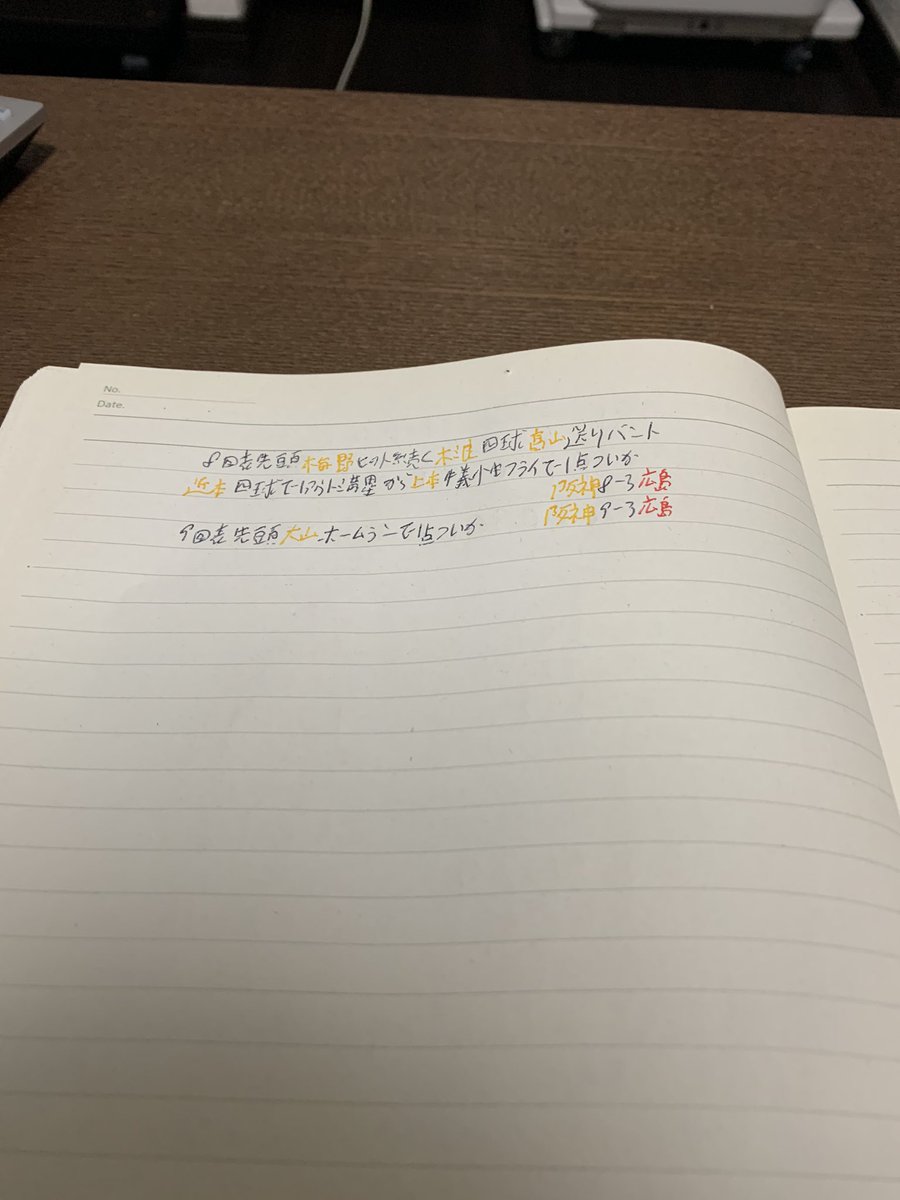 No.
Date.
8回表先頭梅野ヒット続く木浪四球高山送りバント
近本四球で1アウト満塁から上本犠牲フライで1点ついか
阪神8-3広島
9回表先頭大山ホームランで1点ついか
阪神9-3広島